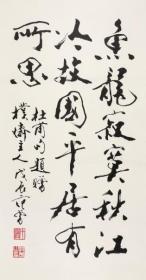 魚龍寂寞秋江
冷故國平居有
所思
杜甫句題贈
樸塘主人戊辰范曾